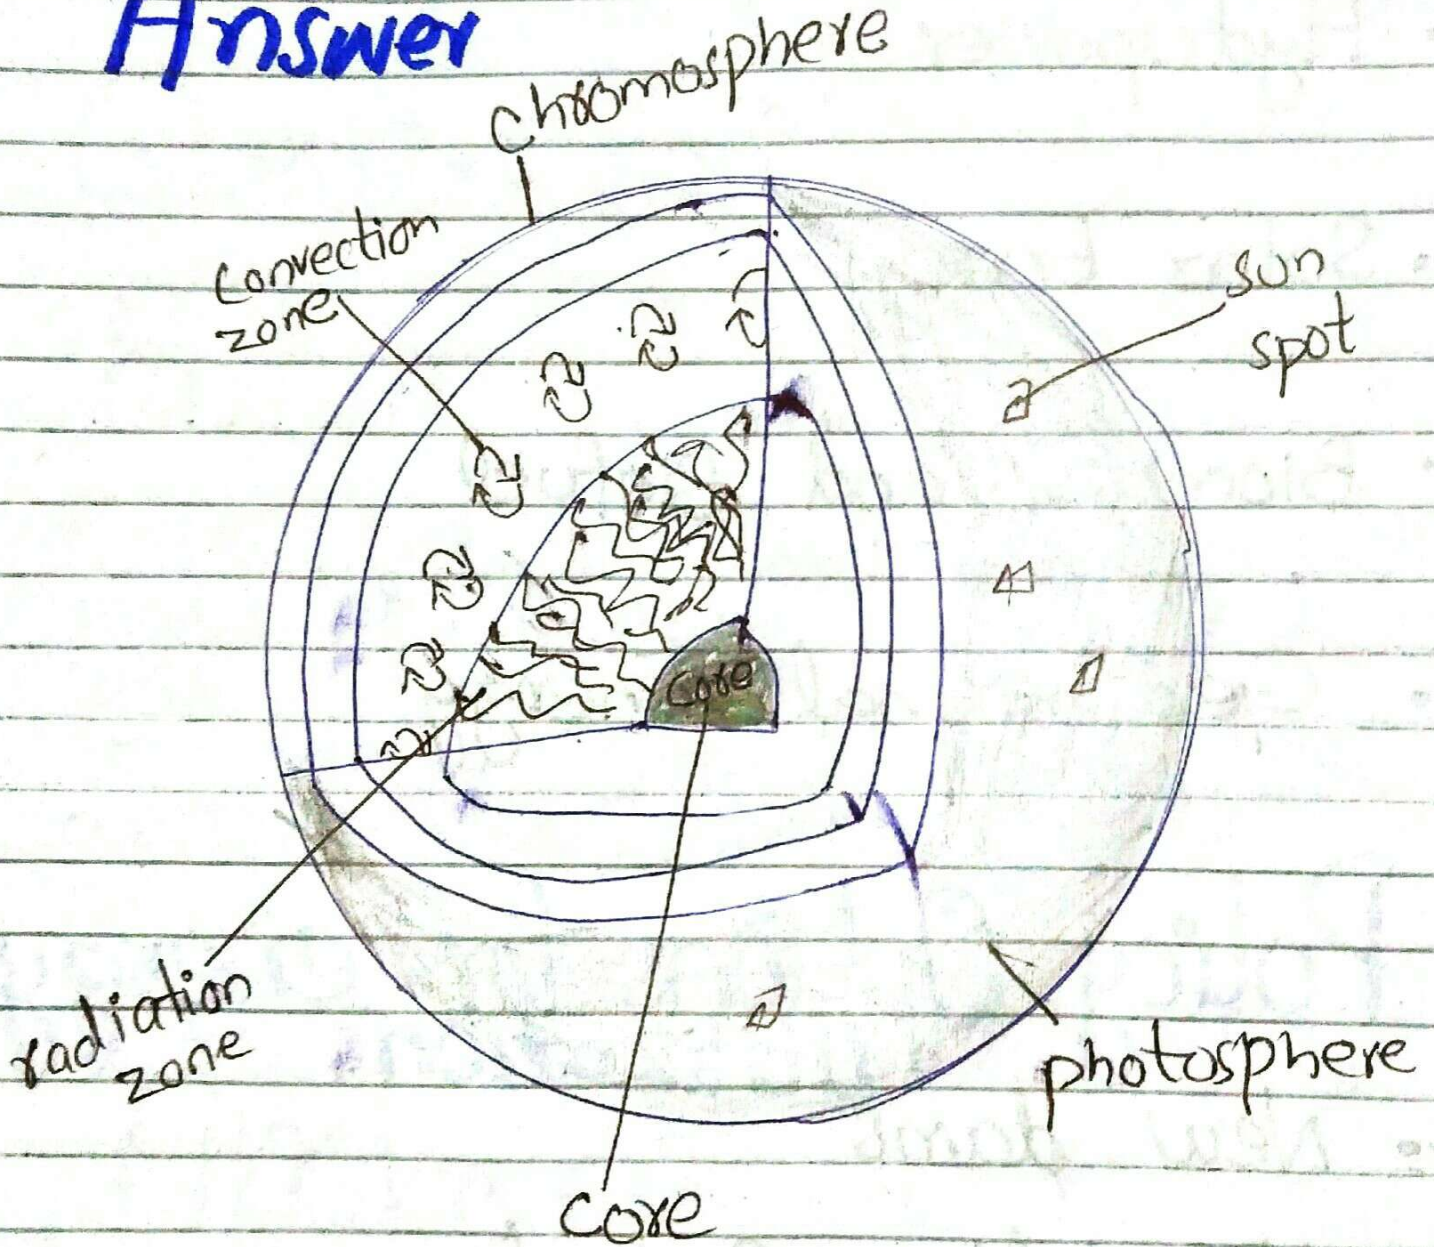 Answer
Chromosphere
convection
zone
sun
spot
core
radiation
zone
photosphere
core